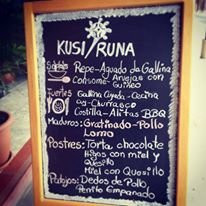 KUSI RUNA
Sopitas Repe-Aguado de Gallina
Consome-Arvejas con
Guineo
Fuertes Gallina Cuyada-Cecina
Churrasco
Costilla-Alitas BBQ
Maduros: Gratinado-Pollo
Lomo
Postres: Torta chocolate
Higos con miel y
Quesillo
Miel con Quesillo
Platojos: Dedos de Pollo
Pernile Empanado